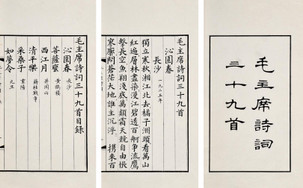 毛主席詩詞
三十九首
毛主席詩詞三十九首
沁園春
長沙
一九二五年
獨立寒秋湘江北去橘子洲頭看萬山
紅遍層林盡染漫江碧透百舸爭流鷹
擊長空魚翔淺底萬類霜天競自由悵
寥廓問蒼茫大地誰主沉浮 攜來百
毛主席詩詞三十九首目錄
沁園春 長沙
菩薩蠻 黃鶴樓
西江月 井岡山
清平樂 蔣桂戰爭
采桑子 重陽
如夢令 元旦